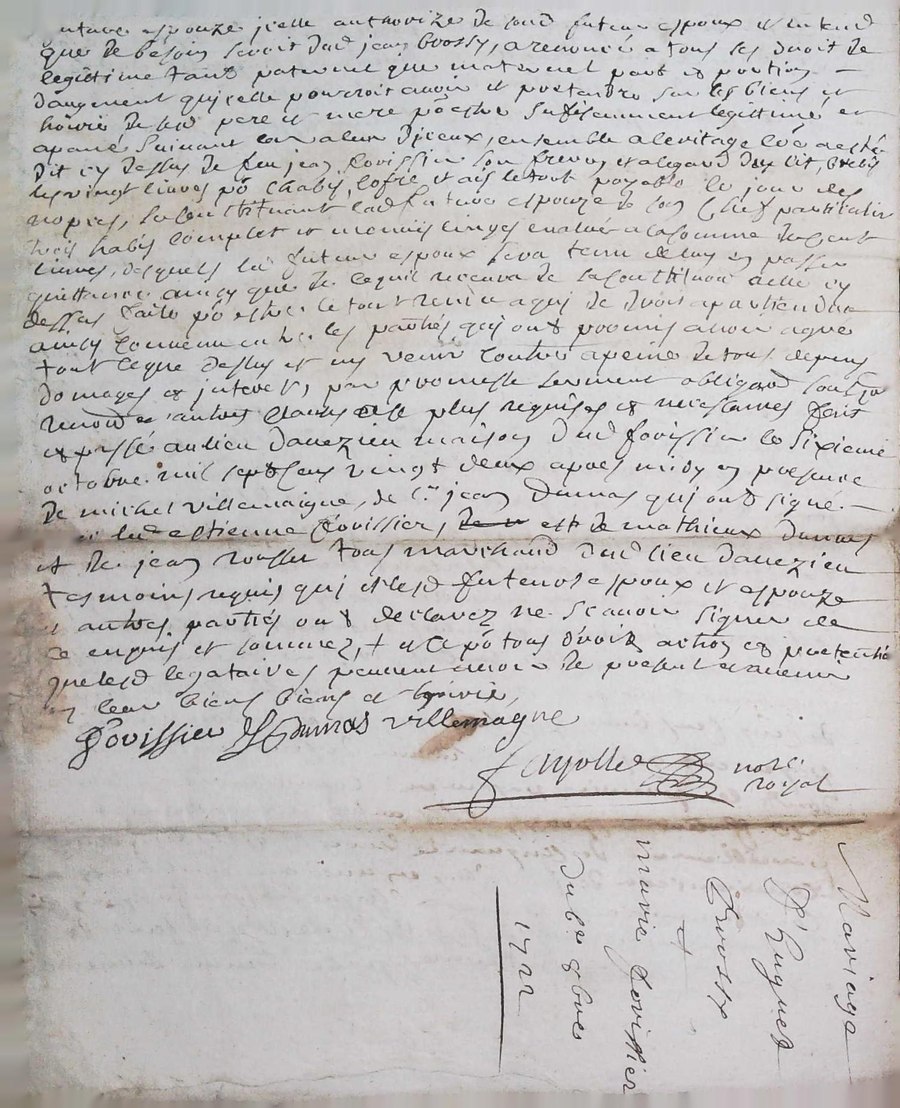 future espouze jcelle authorizé de sond futeur espoux
que de besoin dud jean Brossy, a renoncé a tous ses droit de
legittime tant paternel que maternel part & portion
daugement qujcelle pourroit avoir et pretendre sur les biens et
hoirie de sesd pere et mere po estre sufisemment legittimé et
apané suivant la valeur djceux, ensemble a levitage
dit cy dessus de feu jean fovissier son et alegard
les vingt livres po chabis, et ais le tout payable le jour des
nopces, se constituant lad future espouze de son chef particulier
trois habis complet et menus linges evalué a la somme de cent
livres, desquels led futeur espoux sera tenu de luy en passer
quittance ainsy que de ce quil recevra de la constitution a elle cy
dessus faite po estre le tout rendu a quj de droit apartiendra
ainsy convenu entre les partiés quj ont promis avoir agreé
tout ce que dessus et ny venir contre a peine de tous depens
domages & jnterets, par promesse serment obligaon
renonoe & autres clauses plus requises & necessaires fait
& passé au lieu davezieu maison dud fovissier le sixieme
octobre mil sept cens vingt deux apres midy en presence
de michel villemaigne, de sr jean Dumas quj ont signé
led estienne fovissier, et de mathieux Dumas
et de jean rousset tous marchand dud lieu davezieu
tesmoins requis quj et lesd futeurs espoux et espouze
et autres partiés ont declarez ne scavoir signer de
ce enquis et sommez, + et ce po tous droit action & pretentio
que lesd legataires peuvent avoir de present et advenir
en leur biens et hoirie,
fovissier JDumas villemagne
fayolle nore
royal
Mariage
d'huguet
Brossy
+
marie fovissier
du 6e 8bre
1722